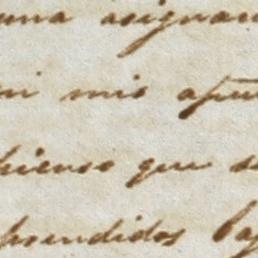 una asignan
ni mis apun
pienso que se
prendidos ba